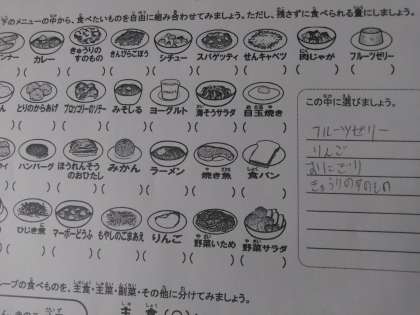 下のメニューの中から、食べたいものを自由に組み合わせてみましょう。ただし、残さずに食べられる量にしましょう。
カレー きゅうりのすのもの きんぴらごぼう シチュー スパゲッティ せんキャベツ 肉じゃが フルーツゼリー
( ) ( ) ( ) ( ) ( ) ( ) ( ) ( )
とりのからあげ ブロッコリーのソテー みそしる ヨーグルト 海そうサラダ 目玉焼き
( ) ( ) ( ) ( ) ( ) ( )
ハンバーグ ほうれんそうのおひたし みかん ラーメン 焼き魚 食パン
( ) ( ) ( ) ( ) ( ) ( )
ひじき煮 マーボーどうふ もやしのごまあえ りんご 野菜いため 野菜サラダ
( ) ( ) ( ) ( ) ( ) ( )
この中に選びましょう。
フルーツゼリー
りんご
おにぎり
きゅうりのすのもの
ループの食べものを、主食・主菜・副菜・その他に分けてみましょう。
主食(○)